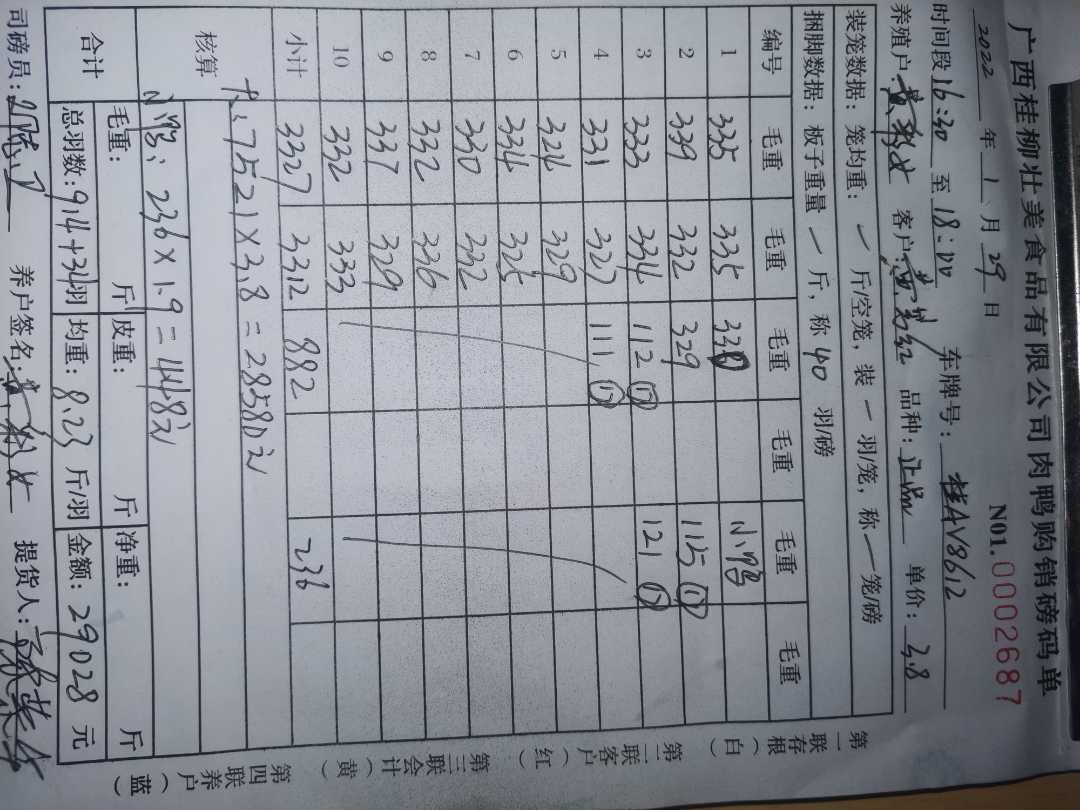 广西桂柳壮美食品有限公司肉鸭购销磅码单
2022 年 1 月 29 日 N01.0002687
时间段 16:30 至 18:00 车牌号: 桂AV8612
养殖户: 客户: 品种: 单价: 3.8
装笼数据: 笼均重: / 斤/空笼, 装 / 羽/笼, 称 / 笼/磅
捆脚数据: 板子重量 / 斤, 称 40 羽/磅
编号 毛重 毛重 毛重 毛重 毛重 毛重
1 335 335 330 小鸭
2 339 332 329 115 ⑰
3 333 334 112 ⑰ 121 ⑰
4 331 327 111 ⑰
5 324 329
6 334 325
7 330 332
8 332 336
9 337 329
10 332 333
小计 3327 3312 882 236
核算 大: 7521×3.8=28580元
小鸭: 236×1.9=448元
合计 毛重: 斤 皮重: 斤 净重: 斤
总羽数: 914+34羽 均重: 8.23 斤/羽 金额: 29028 元
司磅员: 养户签名: 提货人:
第一联存根(白)
第二联客户(红)
第三联会计(黄)
第四联养户(蓝)